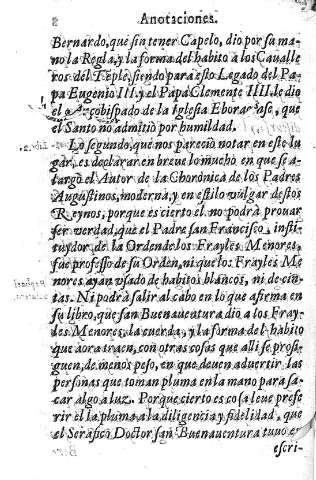 8 Anotaciones.
Bernardo, que sin tener Capelo, dio por su ma-
no la Regla, y la forma del habito a los Caualle
ros del Tēple, siendo para esto Legado del Pa-
pa Eugenio III. y el Papa Clemente IIII. le dio
el Arçobispado de la Iglesia Eboracense, que
el Santo no admitiò por humildad.
Lo segundo, que nos pareciò notar en este lu
gar, es declarar en breue lo mucho en que se a-
largò el Autor de la Choronica de los Padres
Augustinos, moderna, y en estilo vulgar destos
Reynos, porque es cierto ēl no podrà prouar
ser verdad, que el Padre san Francisco, insti-
tuydor de la Orden de los Frayles Menores,
fue professo de su Orden, ni que los Frayles Me
nores ayan vsado de habitos blancos, ni de cin-
tas. Ni podrà salir al cabo en lo que afirma en
su libro, que san Buenauentura dio a los Fray-
les Menores la cuerda, y la forma del habito
que aora traen, con otras cosas que alli se prosi-
guen, de menos peso, en que deuen aduertir las
personas que toman pluma en la mano para sa-
car algo a luz. Porque cierto es cosa leue prefe
rir ēl la pluma a la diligencia y fidelidad, que
el Serafico Doctor san Buenauentura tuuo e-
escri-